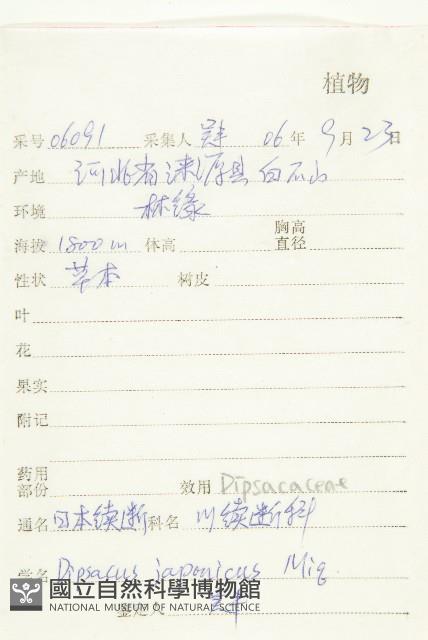 植物
采号 06091 采集人 06 年 9 月 23 日
产地 河北省涞源县白石山
环境 林缘
海拔 1800 m 体高 胸高直径
性状 草本 树皮
叶
花
果实
附记
药用部份 效用 Dipsacaceae
通名 日本续断 科名 川续断科
学名 Dipsacus japonicus Miq.
國立自然科學博物館
NATIONAL MUSEUM OF NATURAL SCIENCE